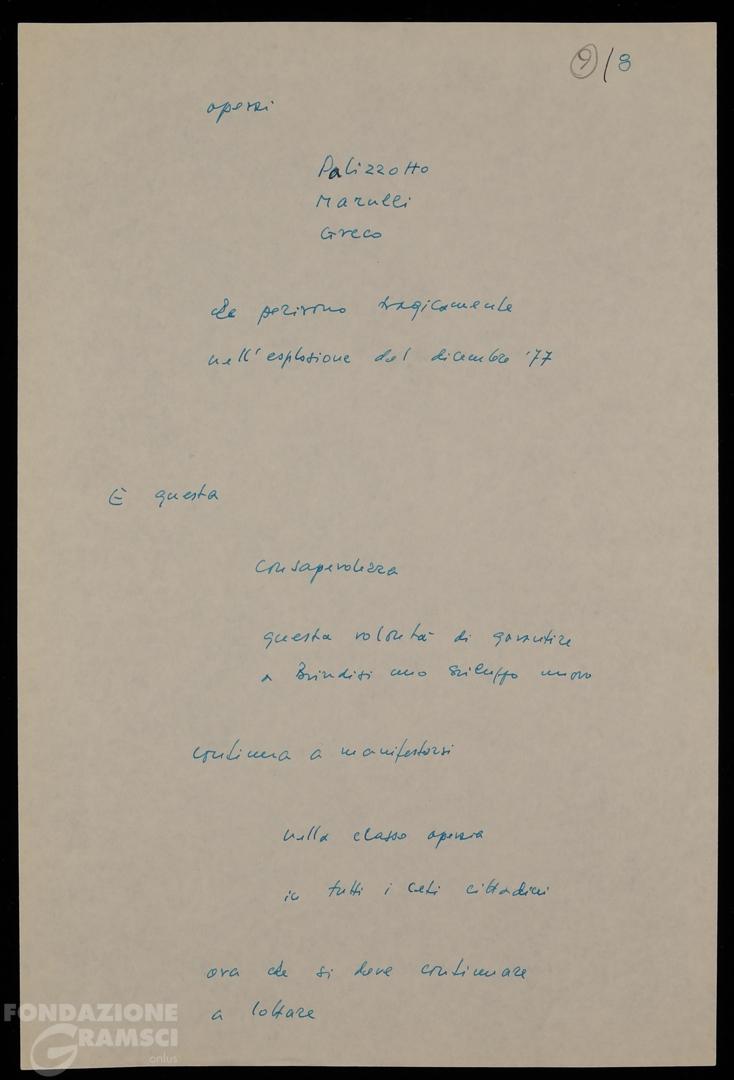 9/8
operai
Palizzotto
Marulli
Greco
che perirono tragicamente
nell'esplosione del dicembre '77
E questa
consapevolezza
questa volontà di garantire
a Brindisi uno sviluppo nuovo
continua a manifestarsi
nella classe operaia
in tutti i ceti cittadini
ora che si deve continuare
a lottare
FONDAZIONE
GRAMSCI
onlus